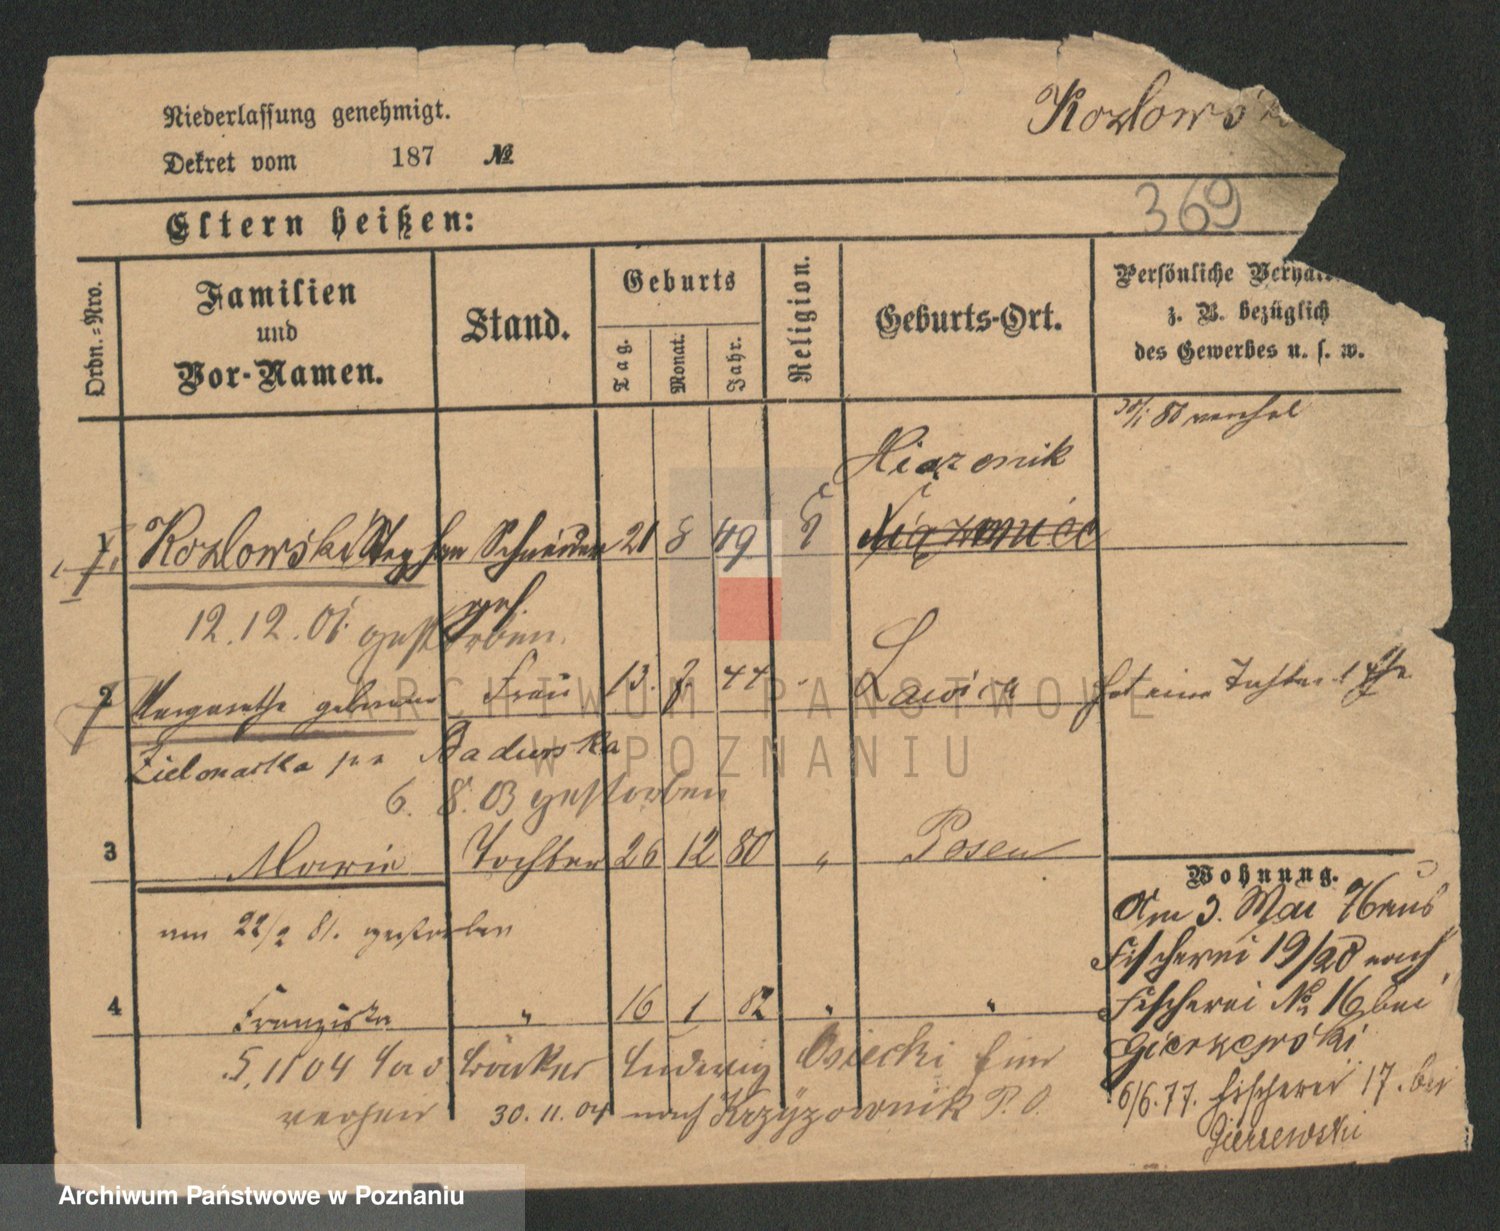 Kozlowsk
Niederlassung genehmigt.
Dekret vom 187 №
369
Eltern heißen:
Ordn.-Nro.
Familien
und
Vor-Namen.
Stand.
Geburts
Tag.
Monat.
Jahr.
Religion.
Geburts-Ort.
Persönliche
z. B. bezüglich
des Gewerbes u. s. w.
80
1 Kozlowski Stephan Schneider 21 8 49
12.12.01. gestorben
2 Margarethe geborene Frau 13. 44 Lawica hat eine Tochter
Zielonacka Badurska
6. 8. 03 gestorben
3 Marie Tochter 26 12 80 " Posen
am 22/2 81. gestorben
4 Franziska " 16 1 82 " "
5.11 04 Ludwig Osiecki
30.11.04 nach Krzyzownik P. O.
Wohnung.
Am 3. Mai 76 aus
Fischerei 19/20 nach
Fischerei № 16 bei
6/6.77. Fischerei 17. bei
Gierszewski
ARCHIWUM PAŃSTWOWE
W POZNANIU
Archiwum Państwowe w Poznaniu